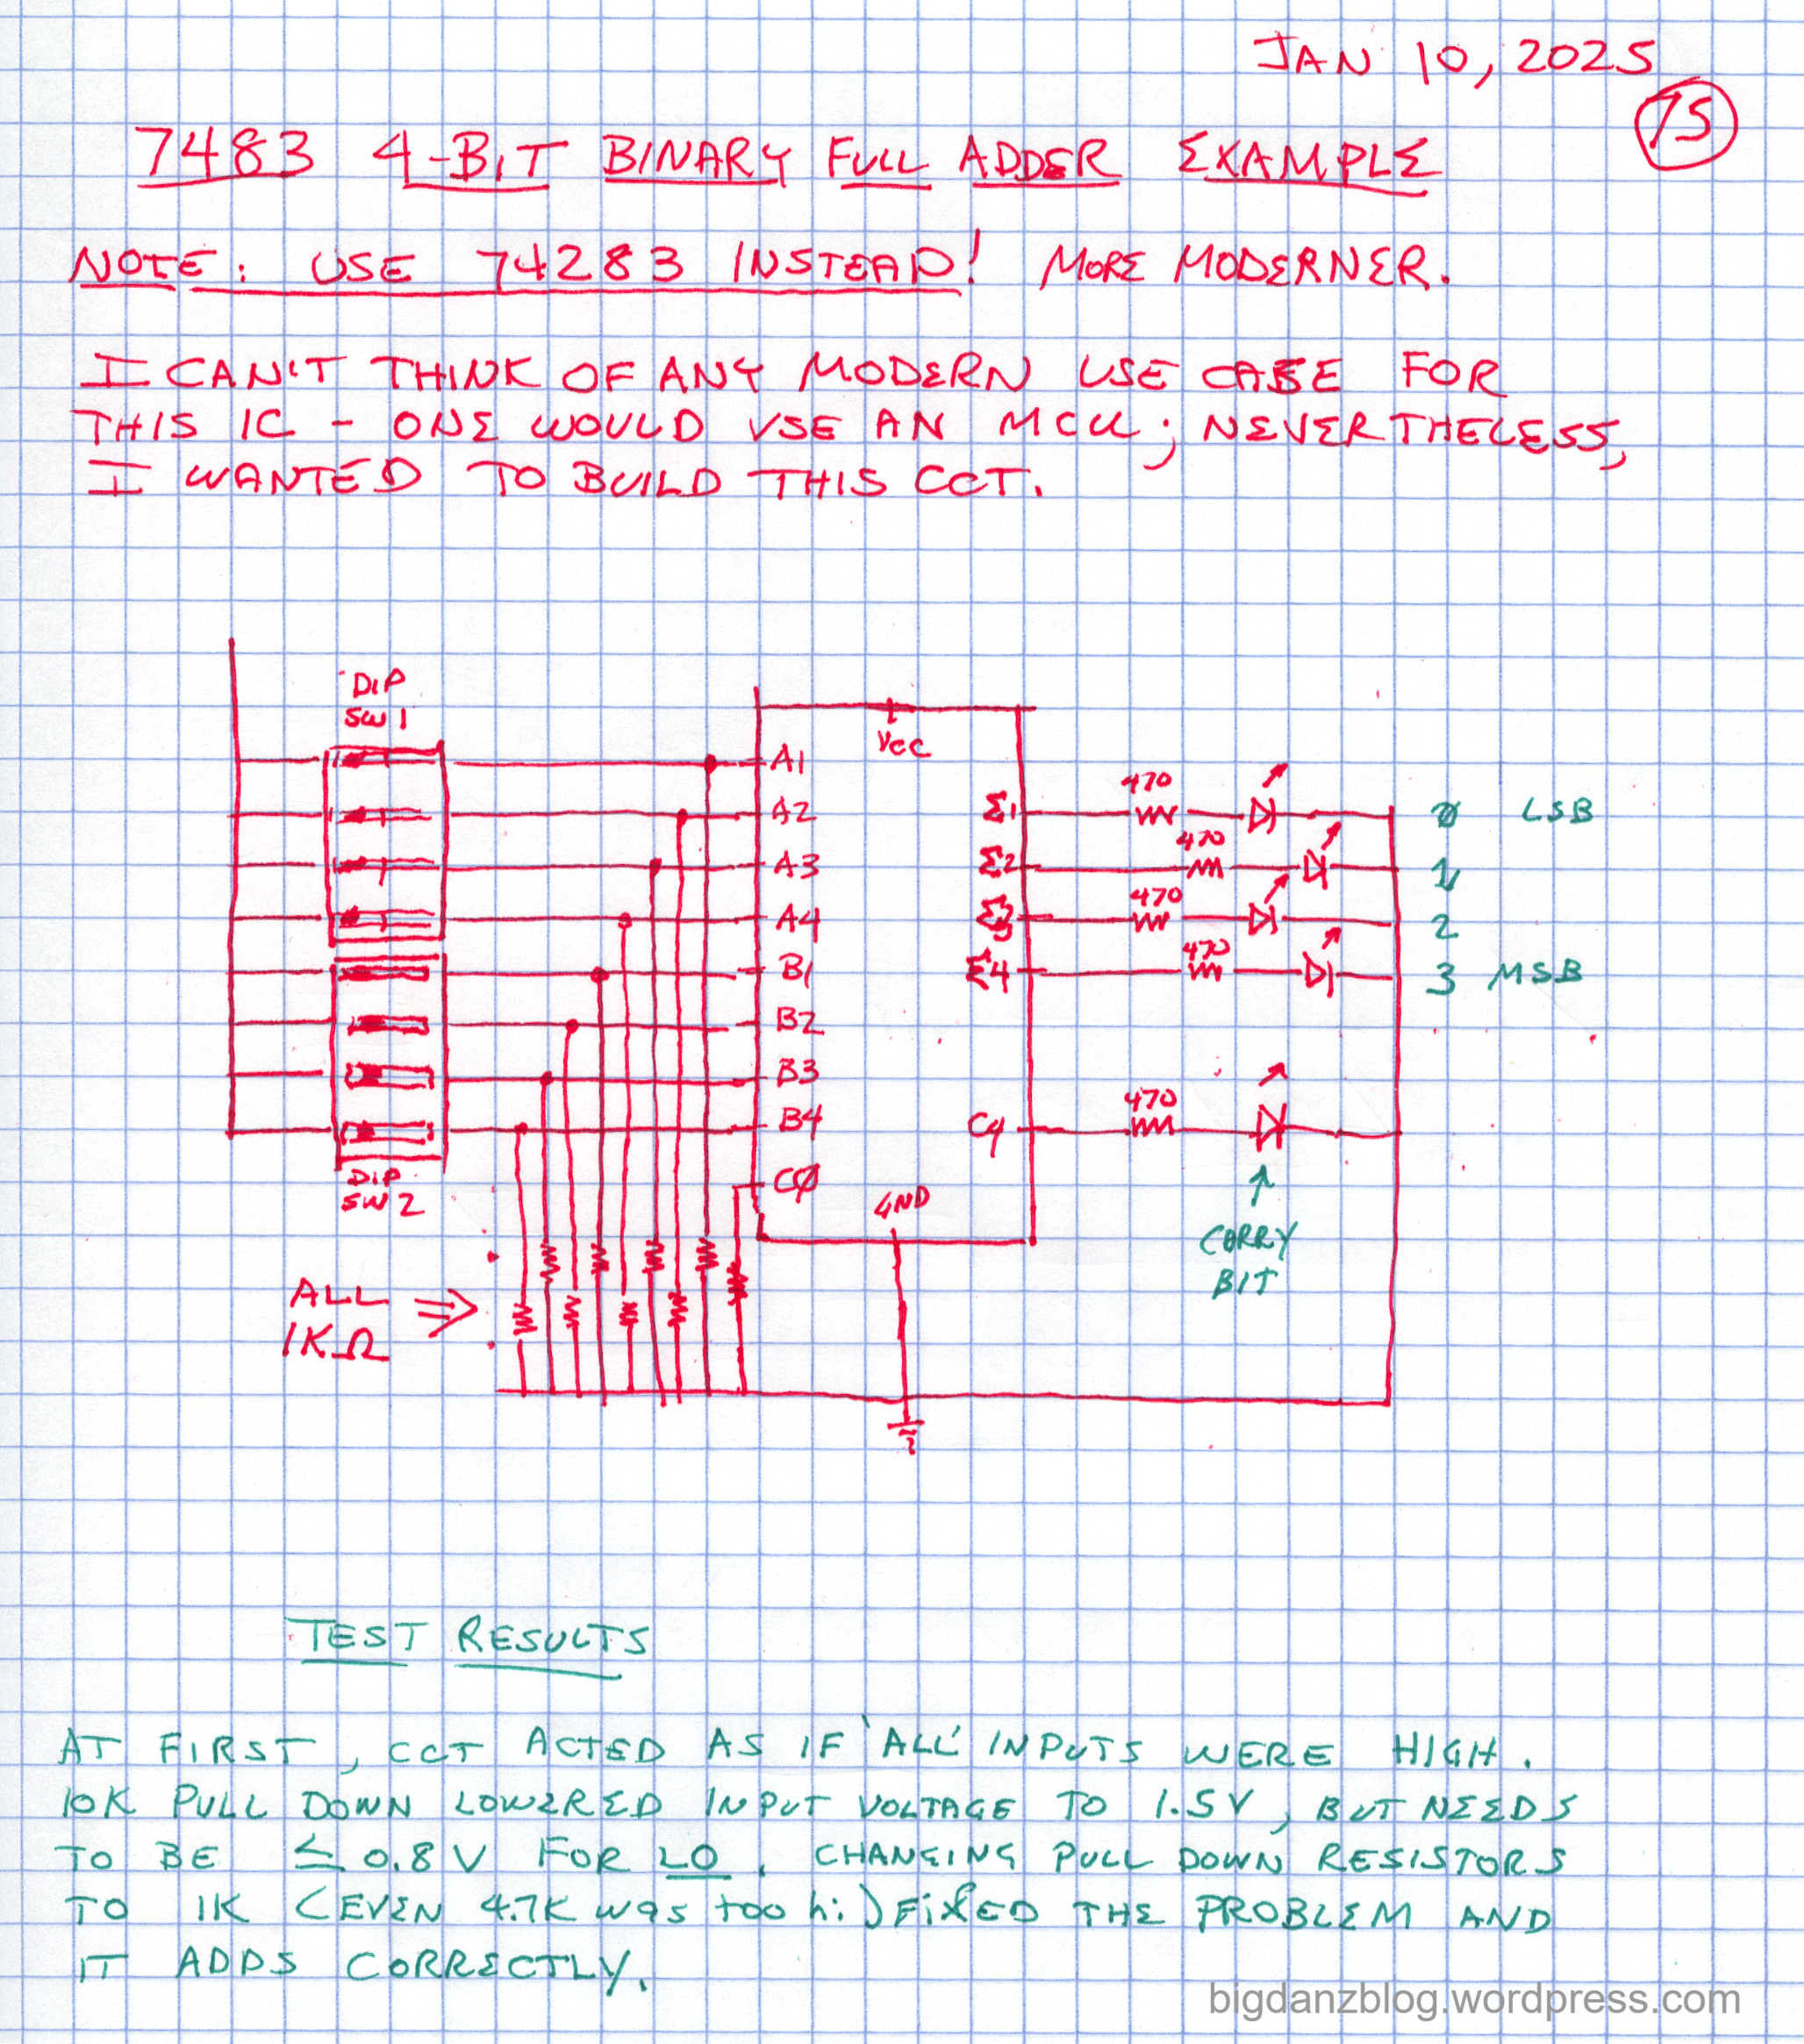 JAN 10, 2025
75
7483 4-BIT BINARY FULL ADDER EXAMPLE
NOTE: USE 74283 INSTEAD! MORE MODERNER.
I CAN'T THINK OF ANY MODERN USE CASE FOR
THIS IC - ONE WOULD USE AN MCU; NEVERTHELESS,
I WANTED TO BUILD THIS CCT.
DIP
SW1
VCC
A1
A2
A3
A4
B1
B2
B3
B4
CØ
Σ1
Σ2
Σ3
Σ4
C4
GND
470
470
470
470
470
Ø LSB
1
2
3 MSB
DIP
SW2
CORRY
BIT
ALL
1KΩ
TEST RESULTS
AT FIRST, CCT ACTED AS IF 'ALL' INPUTS WERE HIGH.
10K PULL DOWN LOWERED INPUT VOLTAGE TO 1.5V, BUT NEEDS
TO BE ≤ 0.8V FOR LO. CHANGING PULL DOWN RESISTORS
TO 1K (EVEN 4.7K was too hi) FIXED THE PROBLEM AND
IT ADDS CORRECTLY.
bigdanzblog.wordpress.com